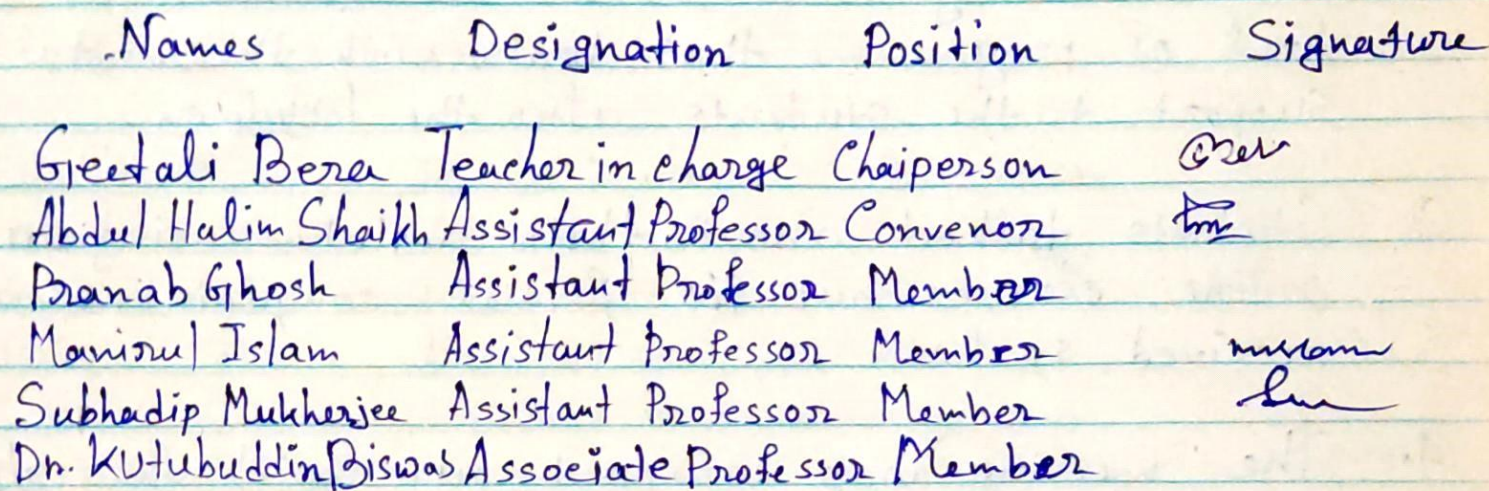 Names Designation Position Signature
Geetali Bera Teacher in charge Chaiperson
Abdul Halim Shaikh Assistant Professor Convenor
Pranab Ghosh Assistant Professor Member
Manirul Islam Assistant Professor Member
Subhadip Mukherjee Assistant Professor Member
Dr. Kutubuddin Biswas Associate Professor Member